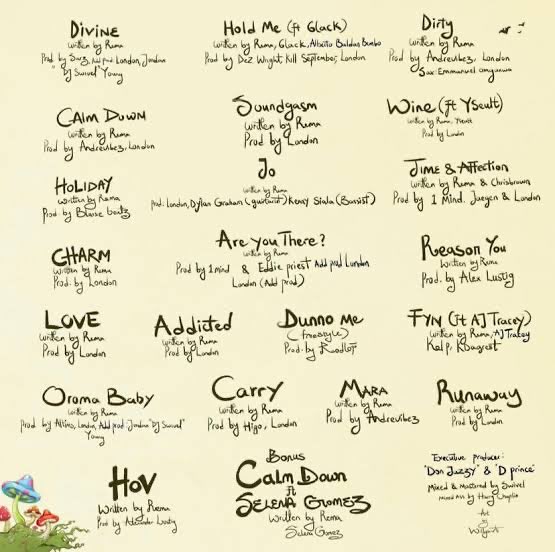 Divine
written by Rema
Prod. by Sarz, Add prod London, Jordan
"DJ Swivel" Young
Hold Me (ft 6lack)
written by Rema, 6lack, Alberto Baldan Bembo
Prod by Dez Wright, Kill September, London
Dirty
written by Rema
Prod by Andrevibez, London
Sax: Emmanuel
Calm Down
written by Rema
Prod by Andrevibez, London
Soundgasm
written by Rema
Prod by London
Wine (ft Yseult)
written by Rema, Yseult
Prod by London
Holiday
written by Rema
Prod by Blaise beatz
Jo
written by Rema
prod. London, Dylan Graham (guitarist) Kenzy Siala (Bassist)
Time & Affection
written by Rema & Chrisbrown
Prod by 1 Mind, Jaegen & London
CHARM
written by Rema
Prod. by London
Are you There?
written by Rema
Prod by 1mind & Eddie priest Add prod London
London (Add prod)
Reason You
written by Rema
Prod. by Alex Lustig
LOVE
written by Rema
Prod by London
Addicted
written by Rema
Prod by London
Dunno Me
(freestyle)
Prod. by
FYN (ft AJ Tracey)
written by Rema, AJ Tracey
Kel P,
Oroma Baby
written by Rema
Prod. by Altims, London, Add prod: Jordan "DJ Swivel"
Young
Carry
written by Rema
Prod by Higo, London
Mara
written by Rema
Prod by Andrevibez
Runaway
written by Rema
Prod by London
Hov
Written by Rema
Prod by Alexander Lustig
Bonus
Calm Down
ft
Selena Gomez
written by Rema
Selena Gomez
Executive producer:
'Don Jazzy' & 'D prince'
Mixed & Mastered by Swivel
Art
by